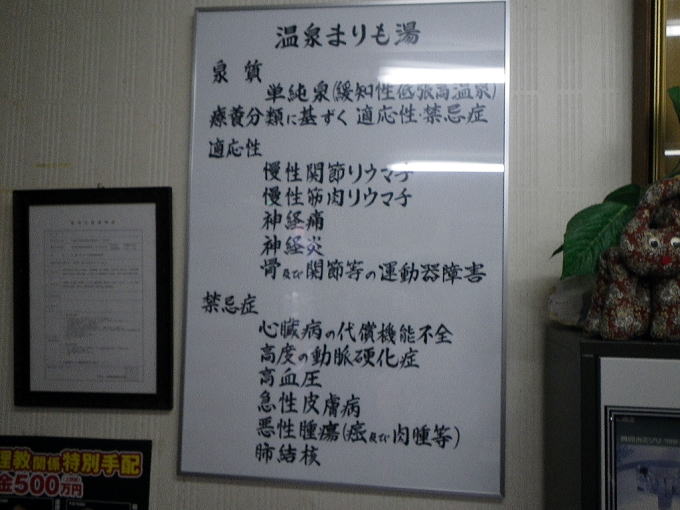 温泉まりも湯
泉質
単純泉(緩知性低張高温泉)
療養分類に基ずく適応性・禁忌症
適応性
慢性関節リウマチ
慢性筋肉リウマチ
神経痛
神経炎
骨及び関節等の運動器障害
禁忌症
心臓病の代償機能不全
高度の動脈硬化症
高血圧
急性皮膚病
悪性腫瘍(症及び肉腫等)
肺結核
理教関係特別手配
金500万円